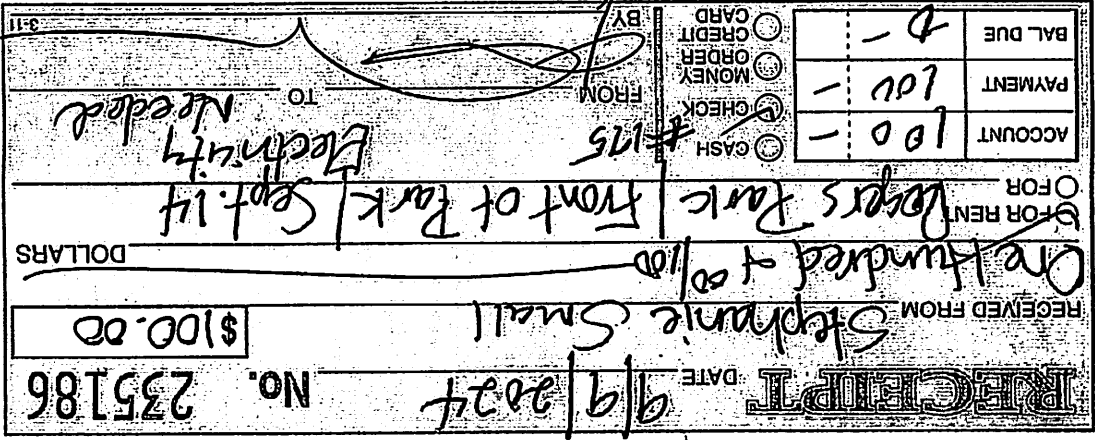 RECEIPT DATE 9/9/2024 No. 235186
RECEIVED FROM Stephanie Small $100.00
One Hundred + 00/100 DOLLARS
FOR RENT
FOR Rogers Park / Front of Park / Sept. 14
Electricity Needed
ACCOUNT 100 -
PAYMENT 100 -
BAL. DUE 0 -
CASH
CHECK #175
MONEY ORDER
CREDIT CARD
FROM TO
BY
3-11